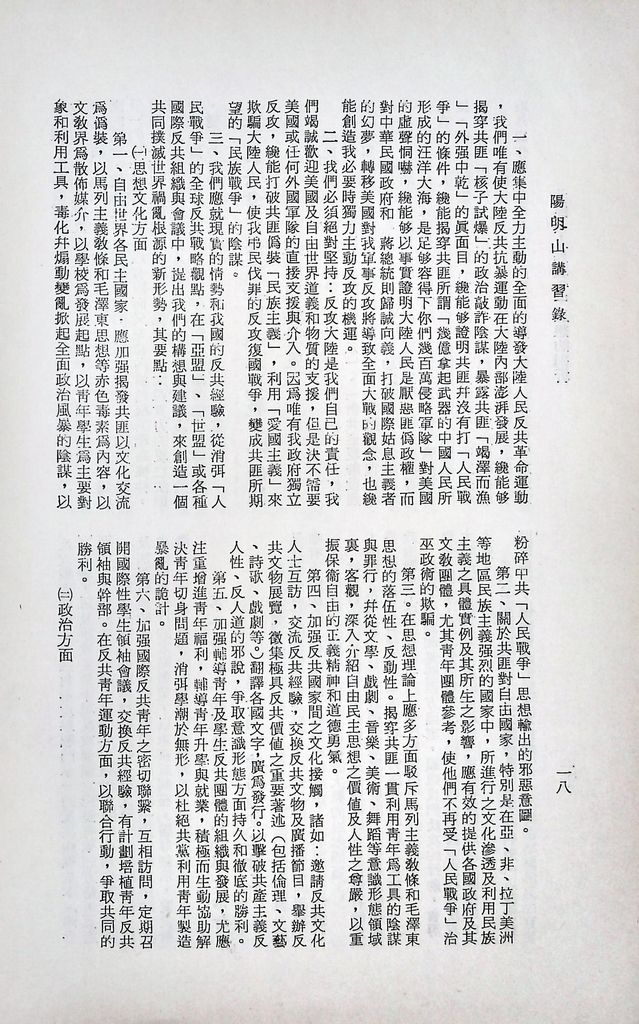 陽明山講習錄
一八
一、應集中全力主動的全面的導發大陸人民反共革命運動
，我們唯有使大陸反共抗暴運動在大陸內部澎湃發展，纔能够
揭穿共匪「核子試爆」的政治敲詐陰謀，暴露共匪「竭澤而漁
」「外强中乾」的眞面目，纔能够證明共匪幷沒有打「人民戰
爭」的條件，纔能揭穿共匪所謂「幾億拿起武器的中國人民所
形成的汪洋大海，是足够容得下你們幾百萬侵略軍隊」對美國
的虛聲恫嚇，纔能够以事實證明大陸人民是厭惡匪僞政權，而
對中華民國政府和　蔣總統則歸誠向義，打破國際姑息主義者
的幻夢，轉移美國對我軍事反攻將導致全面大戰的觀念，也纔
能創造我必要時獨力主動反攻的機運。
二、我們必須絕對堅持：反攻大陸是我們自己的責任，我
們竭誠歡迎美國及自由世界道義和物質的支援，但是決不需要
美國或任何外國軍隊的直接支援與介入。因爲唯有我政府獨立
反攻，纔能打破共匪僞裝「民族主義」，利用「愛國主義」來
欺騙大陸人民，使我弔民伐罪的反攻復國戰爭，變成共匪所期
望的「民族戰爭」的陰謀。
三、我們應就現實的情勢和我國的反共經驗，從消弭「人
民戰爭」的全球反共戰略觀點，在「亞盟」、「世盟」或各種
國際反共組織與會議中，提出我們的構想與建議，來創造一個
共同撲滅世界禍亂根源的新形勢，其要點：
㈠思想文化方面
第一、自由世界各民主國家，應加强揭發共匪以文化交流
爲僞裝，以馬列主義敎條和毛澤東思想等赤色毒素爲內容，以
文敎界爲散佈媒介，以學校爲發展起點，以靑年學生爲主要對
象和利用工具，毒化幷煽動變亂掀起全面政治風暴的陰謀，以
粉碎中共「人民戰爭」思想輸出的邪惡意圖。
第二、關於共匪對自由國家，特別是在亞、非、拉丁美洲
等地區民族主義强烈的國家中，所進行之文化滲透及利用民族
主義之具體實例及其所生之影響，應有效的提供各國政府及其
文敎團體，尤其靑年團體參考，使他們不再受「人民戰爭」治
巫政術的欺騙。
第三、在思想理論上應多方面駁斥馬列主義敎條和毛澤東
思想的落伍性、反動性。揭穿共匪一貫利用靑年爲工具的陰謀
與罪行，幷從文學、戲劇、音樂、美術、舞蹈等意識形態領域
裏，客觀，深入介紹自由民主思想之價值及人性之尊嚴，以重
振保衞自由的正義精神和道德勇氣。
第四、加强反共國家間之文化接觸，諸如：邀請反共文化
人士互訪，交流反共經驗，交換反共文物及廣播節目，舉辦反
共文物展覽，徵集極具反共價值之重要著述（包括倫理、文藝
、詩歌、戲劇等。）翻譯各國文字，廣爲發行。以擊破共產主義反
人性、反人道的邪說，爭取意識形態方面持久和徹底的勝利。
第五、加强輔導靑年及學生反共團體的組織與發展，尤應
注重增進靑年福利，輔導靑年升學與就業，積極而生動協助解
決靑年切身問題，消弭學潮於無形，以杜絕共黨利用靑年製造
暴亂的詭計。
第六、加强國際反共靑年之密切聯繫，互相訪問，定期召
開國際性學生領袖會議，交換反共經驗，有計劃培植靑年反共
領袖與幹部。在反共靑年運動方面，以聯合行動，爭取共同的
勝利。
㈡政治方面